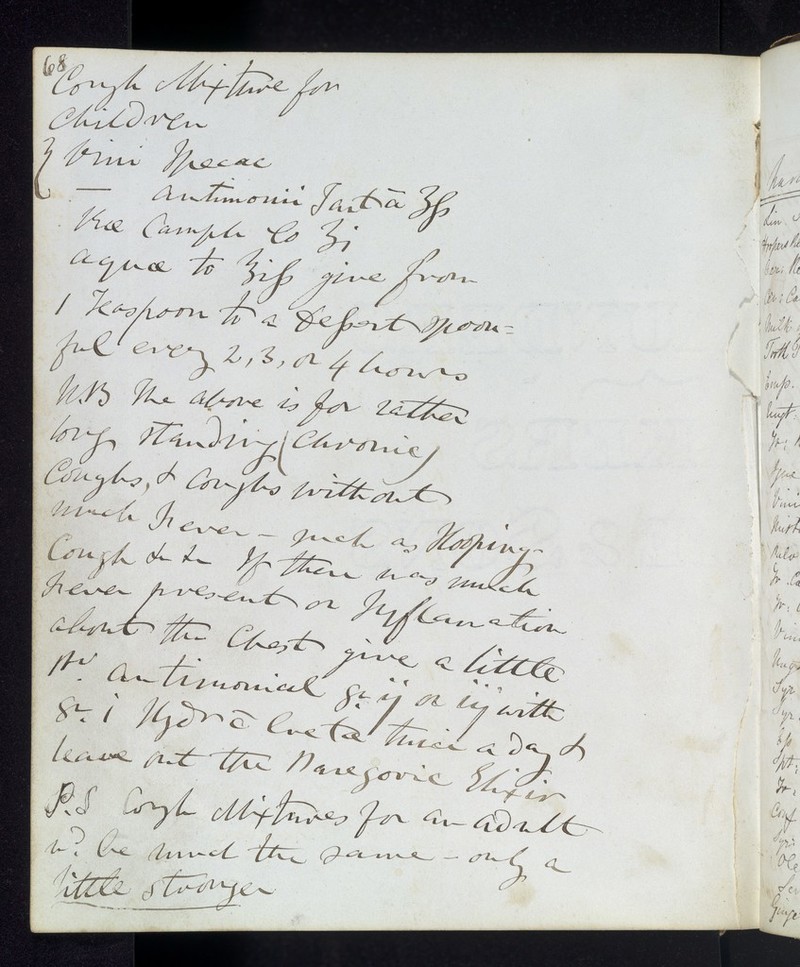 68
Cough Mixture for
Children
Vini Ipecac
— Antimonii Tart ā ʒſs
Træ Camph Co ʒi
aquæ to ʒiſs give from
1 Teaspoon to a Deſsert spoon=
ful every 2, 3, or 4 hours
N.B The above is for rather
long standing (Chronic)
Coughs, & Coughs without
much Fever – such as Hooping-
Cough &c &c If there was much
Fever present or Inflamation
about the Chest give a little
Pv. antimonial gr. ij or iij with
gr. i Hydr c̄ Creta twice a day &
leave out the Paregoric Elixir
P.S Cough Mixtures for an adult
wd. be much the same – only a
little stronger
Lin.
Hoopers
Milk
Tooth
Emp.
Ungt.
Tr:
Vini
Tr. Ca
Tr:
Vini
Ung
Syr
Syr.
Spt:
Tr:
Conf
Syr:
Ole
Ginge